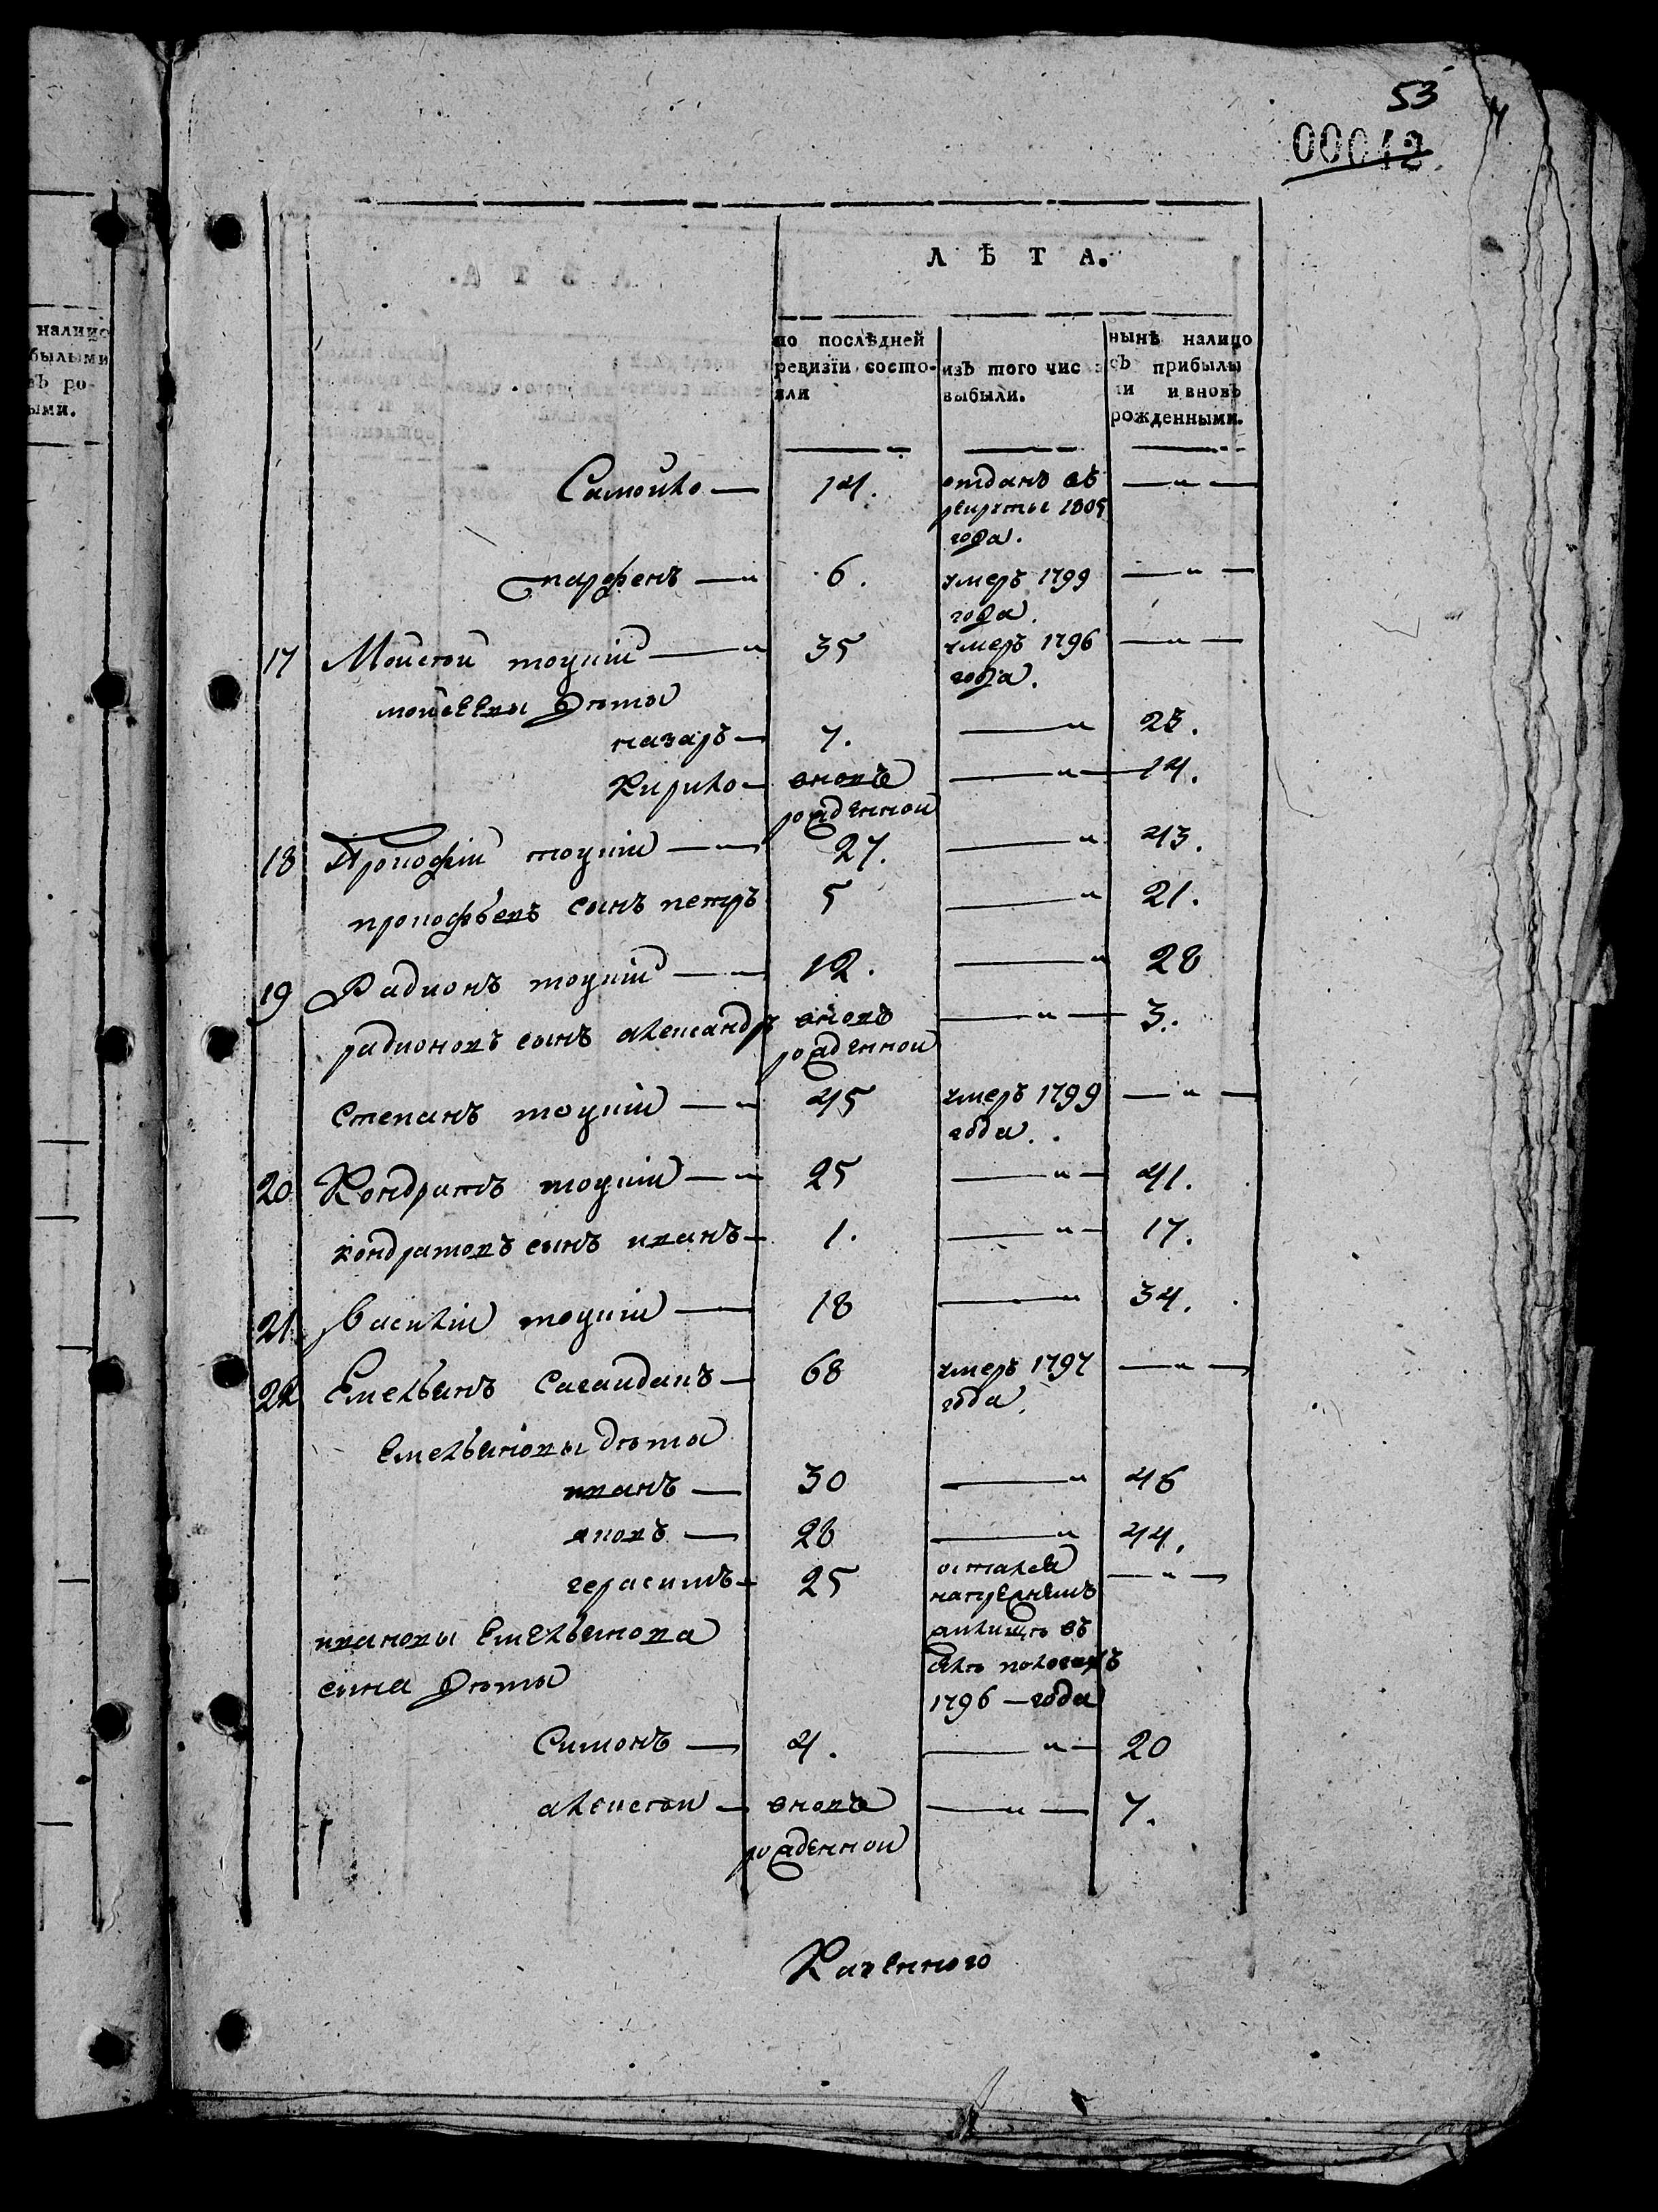 53
00042
налицо
былыми
въ ро-
ыми.
Л Ѣ Т А.
по послѣдней
ревизїи состо-
яли
изъ того чис
выбыли.
нынѣ налицо
съ прибылы
ми и вновь
рожденными.
Самойло — 14. отданъ въ — „ —
рекруты 1805
года.
парфенъ — „ 6. умеръ 1799 — „ —
года.
17 Моисей тоуній — „ 35 умеръ 1796 — „ —
года.
мойсеевы дѣти
назаръ — 7. — „ 23.
Кирило — вновь — „ — 14.
рожденной
18 Прокофій тоуній — „ 27. — „ 43.
прокофьевъ сынъ петръ 5 — „ 21.
19 Радионъ тоуній — „ 12. — „ 28
радионовъ сынъ александръ вновь — „ — 3.
рожденной
Степанъ тоуній — „ 45 умеръ 1799 — „ —
года.
20 Кондратъ тоуній — „ 25 — „ — 41.
кондратовъ сынъ иванъ — 1. — „ — 17.
21 Василій тоуній — 18 — „ 34.
22 Емельянъ — 68 умеръ 1797 — „ —
года.
Емельяновы дѣти
иванъ — 30 — „ 46
яковъ — 28 — „ 44.
герасимъ — 25 остался — „ —
напрежнемъ
ивановы Емельянова жилищѣ въ
сына дѣти
1796 — года
Симонъ — 4. — „ — 20
алексей — вновь — „ — 7.
рожденной
Казенного